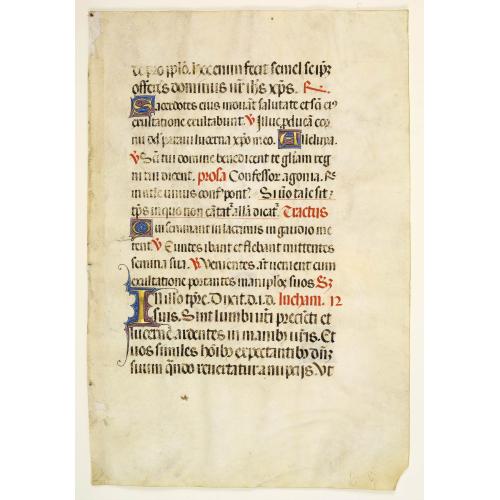 de pro pplo. hec enim fecit semel se ip̄z
offerēs dominus nr̄ ihs̄ xp̄s. R.
Sacerdotes eius induāt salutare et sc̄i ei9
exultatione exultabunt. V Illuc pducā cor
nu dd paraui lucernā xpo meo. Alleluya.
V Sc̄i tui domine benedicent te gliam reg
ni tui dicent. prosa Confessor agonia. Re
unius conf pont? Si uo tale sit
tp̄s in quo non cātat alla dicat. Tractus
Qui seminant in lacrimis in gaudio me
tent. V Euntes ibant et flebant mittentes
semina sua. V Venientes aūt uenient cum
exultatione portantes manipłos suos Sz
In illo tp̄re. Dixit. i. d. lucham. 12
suis. Sint lumbi ur̄i precīcti et
lucerne ardentes in manib9 ur̄is. Et
uos similes hoib9 expectantib9 dn̄z
suum qn̄do reuertatur a nupcijs. Vt